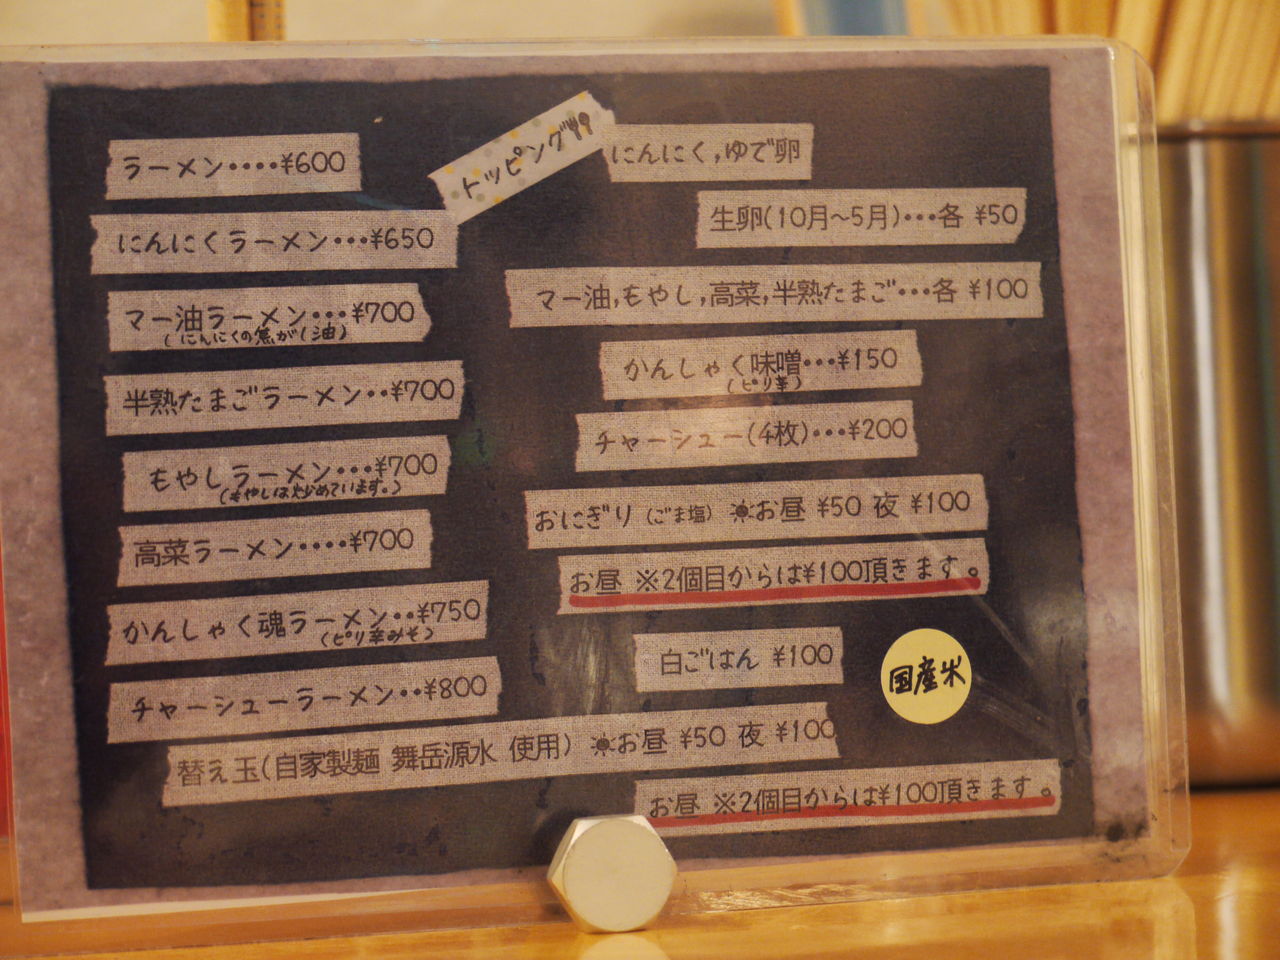 ラーメン････¥600
にんにくラーメン･･･¥650
マー油ラーメン･･･¥700
(にんにくの焦がし油)
半熟たまごラーメン･･¥700
もやしラーメン･･･¥700
(もやしは炒めています。)
高菜ラーメン････¥700
かんしゃく魂ラーメン･･¥750
(ピリ辛みそ)
チャーシューラーメン･･¥800
替え玉(自家製麺 舞岳源水 使用) ☀お昼 ¥50 夜 ¥100
お昼 ※2個目からは¥100頂きます。
トッピング
にんにく,ゆで卵
生卵(10月〜5月)･･･各 ¥50
マー油,もやし,高菜,半熟たまご･･･各 ¥100
かんしゃく味噌･･･¥150
(ピリ辛)
チャーシュー(4枚)･･･¥200
おにぎり (ごま塩) ☀お昼 ¥50 夜 ¥100
お昼 ※2個目からは¥100頂きます。
白ごはん ¥100
国産米